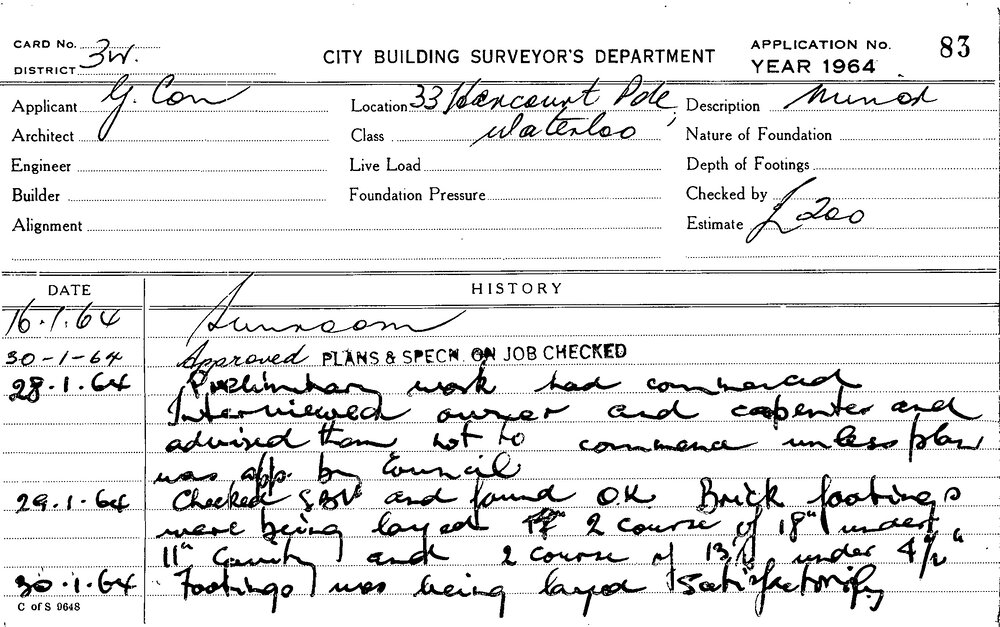 CARD No. 3W.
DISTRICT
CITY BUILDING SURVEYOR'S DEPARTMENT
APPLICATION No. 83
YEAR 1964
Applicant G. Con
Location 33 Harcourt Pde,
Description Sunroom
Architect
Class Waterloo
Nature of Foundation
Engineer
Live Load
Depth of Footings
Builder
Foundation Pressure
Checked by
Alignment
Estimate £200
DATE HISTORY
16.1.64 Sunroom
30-1-64 Approved PLANS & SPECN. ON JOB CHECKED
28.1.64 Preliminary work had commenced
Interviewed owner and capenter and
advised them not to commence unless plan
was app. by Council
29.1.64 Checked and found O.K. Brick footings
were being layed 2 course of 18" under
11" Cavity and 2 course of 13½ under 4½"
30.1.64 Footings was being layed Satisfactorily
C of S 9648